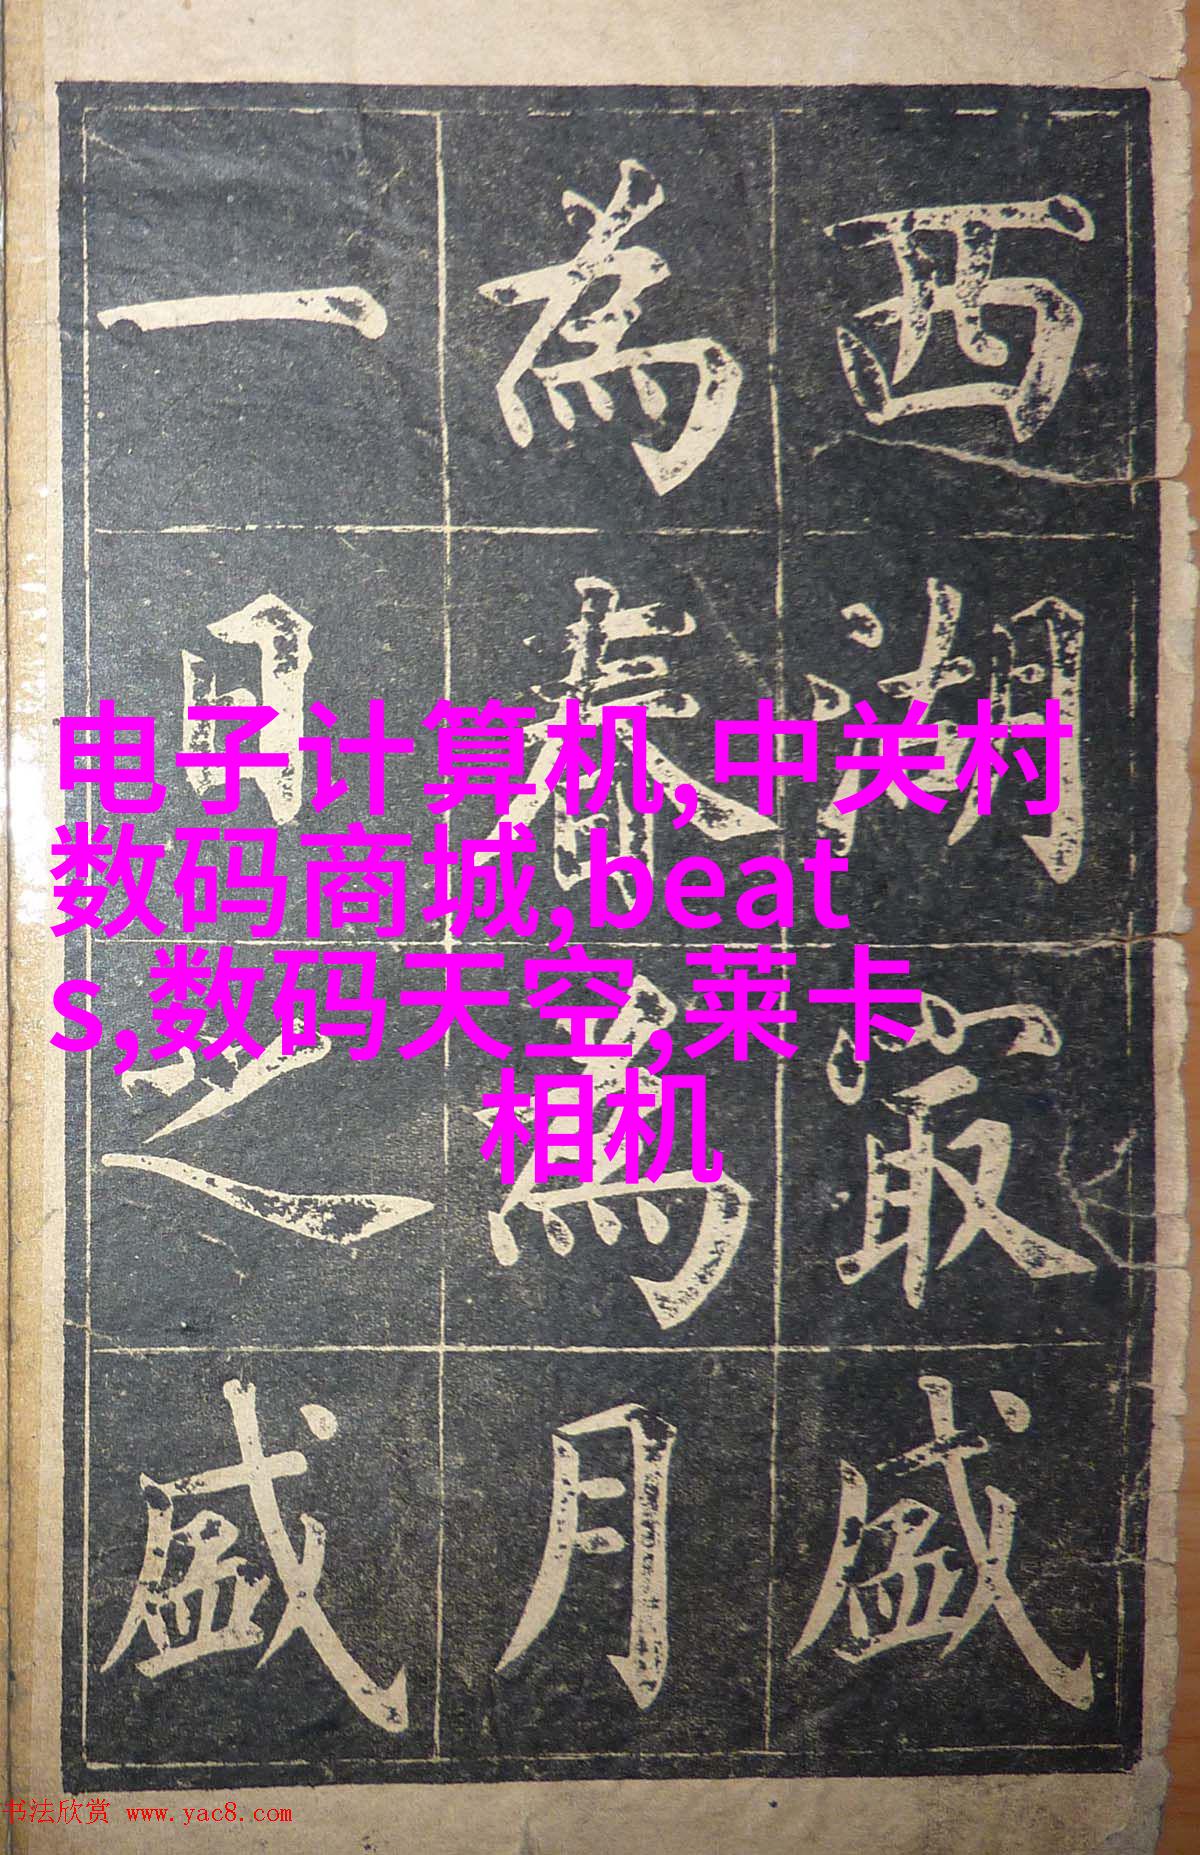 西湖最盛
為春為月
一日之盛
电子计算机,中关村
数码商城,beat
s,数码天空,莱卡
相机
书法欣赏 www.yac8.com